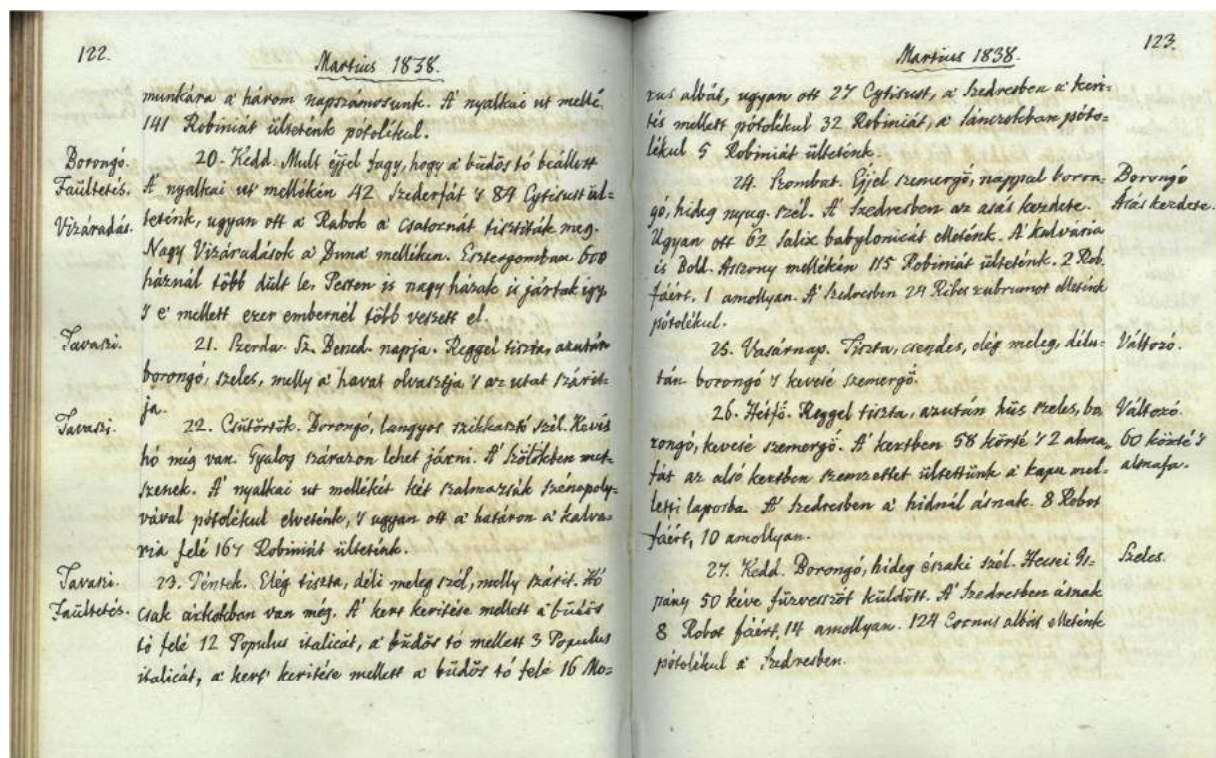 122.
Martius 1838.
munkára a' három napszámosunk. A' nyalkai ut mellé
141 Robiniát ülteténk pótolékul.
Borongó.
Faültetés.
Vizáradás.
20. Kedd. Mult éjjel fagy, hogy a' büdös tó beállott
A' nyalkai ut mellékén 42 Szederfát 's 84 Cytisust ül-
teténk, ugyan ott a' Rabok a' csatornát tisztíták meg.
Nagy Vizáradások a' Duna mellékén. Esztergomban 600
háznál több dült le. Pesten is nagy házak is jártak igy
's e' mellett ezer embernél több veszett el.
Tavaszi.
21. Szerda. Sz. Bened. napja. Reggel tiszta, azután
borongó, szeles, melly a' havat olvasztja 's az utat szárít-
ja.
Tavaszi.
22. Csütörtök. Borongó, langyos szikkasztó szél. Kevés
hó még van. Gyalog szárazon lehet járni. A' Szőlőkben met-
szenek. A' nyalkai ut mellékét két szalmazsák szénapoly-
vával pótolékul elveténk, 's ugyan ott a' határon a' kalva-
ria felé 167 Robiniát ülteténk.
Tavaszi.
Faültetés.
23. Péntek. Elég tiszta, déli meleg szél, melly szárit. Hó
csak árkokban van még. A' kert keritése mellett a' büdös
tó felé 12 Populus italicát, a' büdös tó mellett 3 Populus
italicát, a' kert' keritése mellett a' büdös tó felé 16 Mo-
123.
Martius 1838.
rus albát, ugyan ott 27 Cytisust, a' Szedresben a' keri-
tés mellett pótolékul 32 Robiniát, a' sánczokban póto-
lékul 5 Robiniát ülteténk.
24. Szombat. Éjjel szemergő, nappal boron-
gó, hideg nyug. szél. A' Szedresben az ásás kezdete.
Ugyan ott 62 Salix babylonicát elleténk. A' kalvaria
és Bold. Asszony mellékén 115 Robiniát ülteténk. 2 Rob.
fáért, 1 amollyan. A' Szedresben 24 Ribes rubrumot elleténk
pótolékul.
Borongó
Ásás kezdete.
25. Vasárnap. Tiszta, csendes, elég meleg, délu-
tán borongó 's kevesé szemergő.
Változó.
26. Hétfő. Reggel tiszta, azután hüs szeles, bo
rongó, kevesé szemergő. A' kertben 58 körté 's 2 alma-
fát az alsó kertben szemzettet ültettünk a' kapu mel-
letti laposba. A' Szedresben a' hidnál ásnak. 8 Robot
fáért, 10 amollyan.
Változó.
60 körté 's
almafa.
27. Kedd. Borongó, hideg északi szél. Hecsei Is-
pány 50 kéve füzvesszőt küldött. A' Szedresben ásnak
8 Robot fáért, 14 amollyan. 124 Cornus albát elleténk
pótolékul a' Szedresben.
Szeles.